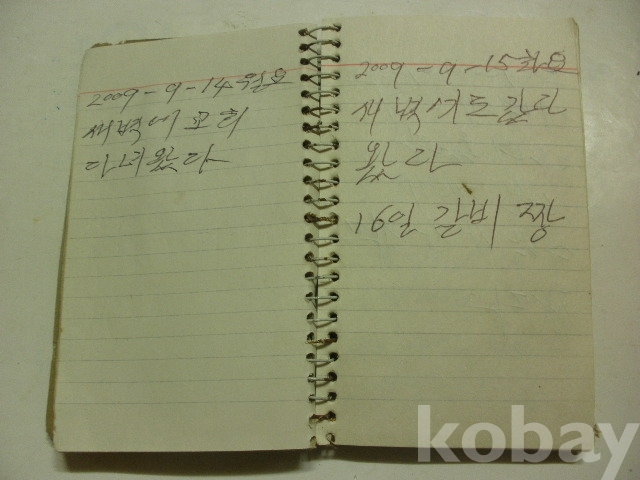 2009-9-14월요
새벽에 교회
다녀왔다
2009-9-15화요
새벽기도갔다
왔다
16일 갈비 짱
kobay